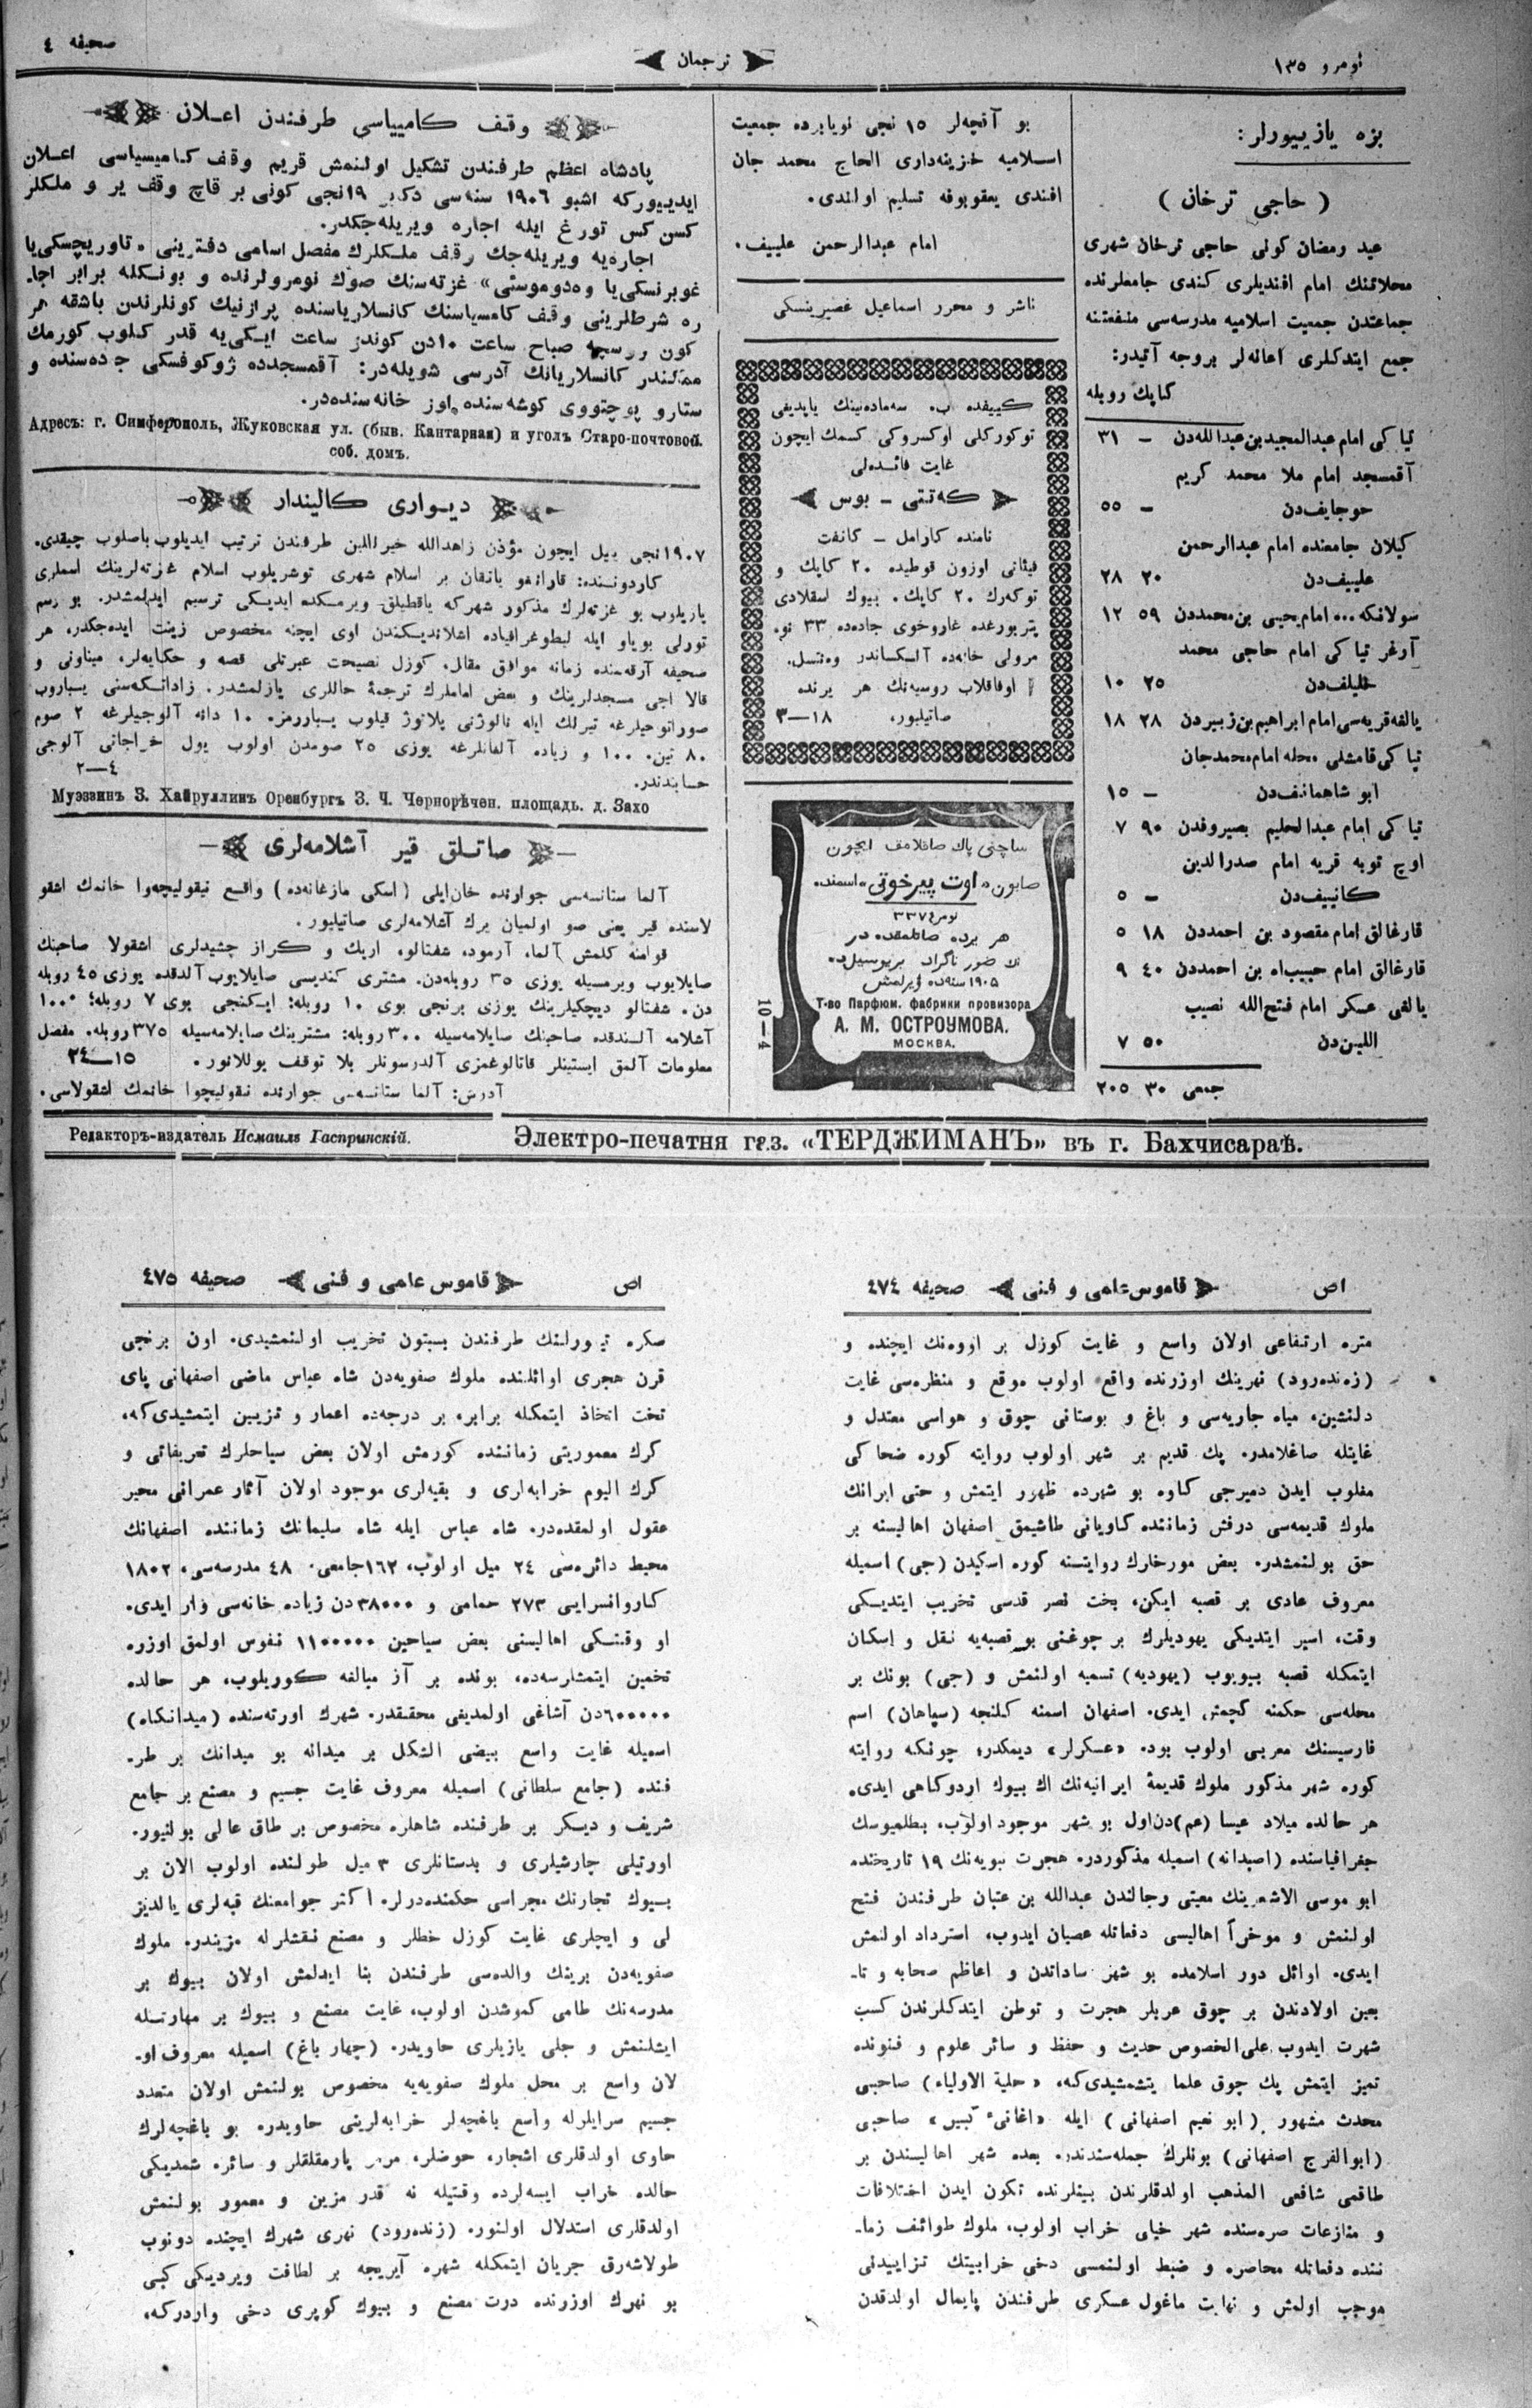 نومرو ۱۳۵
ترجمان
صحیفه ٤
بزه یازییورلر:
(حاجی ترخان)
عید رمضان کونی حاجی ترخان شهری
محلاتنك امام افندیلری کندی جامعلرنده
جماعتدن جمعیت اسلامیه مدرسه‌سی منفعتنه
جمع ایتدکلری اعانه‌لر بروجه آتیدر:
کاپك روبله
تیاکی امام عبدالمجید بن عبدالله‌دن — ۳۱
آقمسجد امام ملا محمد کریم
حوجایف‌دن — ٥٥
کیلان جامعنده امام عبدالرحمن
علییف‌دن ۲۰ ۲۸
سولانکه... امام یحیی بن محمددن ٥۹ ۱۲
آرغر تیاکی امام حاجی محمد
خلیلف‌دن ۲٥ ۱۰
یالفه قریه‌سی امام ابراهیم بن زبیردن ۲۸ ۱۸
تیاکی قامشلی محله امام محمدجان
ابو شاهمانف‌دن — ۱٥
تیاکی امام عبدالحلیم بصیروفدن ۹۰ ۷
اوچ توبه قریه امام صدرالدین
کانییف‌دن — ٥
قارغالق امام مقصود بن احمددن ۱۸ ٥
قارغالق امام حبیب‌اه بن احمددن ٤۰ ۹
یالفی عسکر امام فتح‌الله نصیب
اللین‌دن ٥۰ ۷
جمعی ۳۰ ۲۰٥
بو آقچه‌لر ۱٥ نجی نویابرده جمعیت
اسلامیه خزینه‌داری الحاج محمد جان
افندی یعقوبوفه تسلیم اولندی.
امام عبدالرحمن علییف.
ناشر و محرر اسماعیل غصپرینسکی
کییفده ب. سه‌ماده‌نینك یاپدیغی
توکورکلی اوکسروکی کسمك ایچون
غایت فائده‌لی
که‌تتی – بوس
نامنده کارامل – کانفت
فیئاتی اوزون قوطیده ۲۰ کاپك و
توکه‌رك ۲۰ کاپك. بیوك اسقلادی
پتربورغده غاروخوی جاده‌ده ۳۳ نو.
مرولی خانه‌ده آلکساندر وه‌نتسل.
اوفاقلاب روسیه‌نك هر یرنده
صاتیلیور. ۱۸—۳
ساچنی پاك صاقلامق ایچون
صابون «اوت پیرخوتی» اسمنده
نومرو ۳۳۷٤
هر یرده صاتلمقده در
۱۹۰٥ سنه‌ده ویرلمش
Т-во Парфюм. фабрики провизора
А. М. ОСТРОУМОВА.
МОСКВА.
10—4
وقف کامییاسی طرفندن اعلان
پادشاه اعظم طرفندن تشکیل اولنمش قریم وقف کامیسیاسی اعلان
ایدییورکه اشبو ۱۹۰٦ سنه‌سی دکبر ۱۹نجی کونی بر قاچ وقف یر و ملکلر
کسن کس تورغ ایله اجاره ویریله‌جکدر.
اجاره‌یه ویریله‌جك وقف ملکلرك مفصل اسامی دفترینی «تاوریچسکی‌یا
غوبرنسکی‌یا وه‌دوموستی» غزته‌سنك صوك نومرولرنده و بونکله برابر اجا-
ره شرطلرینی وقف کامسیاسنك کانسلاریاسنده پرازنیك کونلرندن باشقه هر
کون رسمیه صباح ساعت ۱۰دن کوندز ساعت ایکی‌یه قدر کلوب کورمك
ممکندر کانسلاریانك آدرسی شویله‌در: آقمسجدده ژوکوفسکی جاده‌سنده و
ستارو پوچتووی کوشه‌سنده اوز خانه‌سنده‌در.
Адресъ: г. Симферополь, Жуковская ул. (быв. Кантарная) и уголъ Старо-почтовой.
соб. домъ.
دیواری کالیندار
۱۹۰۷نجی ییل ایچون مؤذن زاهدالله خیراللین طرفندن ترتیب ایدیلوب باصلوب چیقدی.
کاردونسنده: قارانغو یاتقان بر اسلام شهری توشریلوب اسلام غزته‌لرینك اسملری
یازیلوب بو غزته‌لرك مذکور شهرکه یاقطیلق ویرمکده ایدیکی ترسیم ایدلمشدر. بو رسم
تورلی بویاو ایله لیطوغرافیاده اشلاندیکندن اوی ایچنه مخصوص زینت ایده‌جکدر، هر
صحیفه آرقه‌سنده زمانه موافق مقال. کوزل نصیحت عبرتلی قصه و حکایه‌لر، میناونی و
قالا اجی مسجدلرینك و بعض اماملرك ترجمهٔ حاللری یازلمشدر. زاداتکه‌سنی یباروب
صورانوچیلرغه تیرلك ایله نالوژنی پلاتوژ قیلوب یباررمز. ۱۰ دانه آلوجیلرغه ۲ صوم
۸۰ تین. ۱۰۰ و زیاده آلغانلرغه یوزی ۲٥ صومدن اولوب یول خراجاتی آلوجی
حسابندندر. ٤—۲
Муэззинъ З. Хайруллинъ Оренбургъ З. Ч. Чернорѣчен. площадь. д. Захо
صاتلق قیر آشلامه‌لری
آلما ستانسه‌سی جوارنده خان‌ایلی (اسکی مازغانه‌ده) واقع نیقولیچه‌وا خانمك اشقو
لاسنده قیر یعنی صو اولمیان یرك آشلامه‌لری صاتیلیور.
قوامنه کلمش آلما، آرمود، شفتالو، اریك و کراز چشیدلری اشقولا صاحبنك
صایلایوب ویرمسیله یوزی ۳٥ روبله‌دن. مشتری کندیسی صایلایوب آلدقده یوزی ٤٥ روبله
دن. شفتالو دیچکیلرینك یوزی برنجی بوی ۱۰ روبله: ایکنجی بوی ۷ روبله؛ ۱۰۰۰
آشلامه آلندقده صاحبنك صایلامه‌سیله ۳۰۰ روبله: مشترینك صایلامه‌سیله ۳۷٥ روبله. مفصل
معلومات آلمق ایستینلر قاتالوغمزی آلدرسونلر بلا توقف یوللانور. ۱٥—۲٤
آدرس: آلما ستانسه‌سی جوارنده نیقولیچوا خانمك اشقولاسی.
Редакторъ-издатель Исмаилъ Гаспринскій.
Электро-печатня газ. «ТЕРДЖИМАНЪ» въ г. Бахчисараѣ.
اص قاموس علمی و فنی صحیفه ٤۷٤
متره ارتفاعی اولان واسع و غایت کوزل بر اووه‌نك ایچنده و
(زه‌نده‌رود) نهرینك اوزرنده واقع اولوب موقع و منظره‌سی غایت
دلنشین، میاه جاریه‌سی و باغ و بوستانی چوق و هواسی معتدل و
غایتله صاغلامدر. پك قدیم بر شهر اولوب روایته کوره ضحاکی
مغلوب ایدن دمیرجی کاوه بو شهرده ظهور ایتمش و حتی ایرانك
ملوك قدیمه‌سی درفش زماننده کاویانی طاشیمق اصفهان اهالیسنه بر
حق بولنمشدر. بعض مورخلرك روایتنه کوره اسکیدن (جی) اسمیله
معروف عادی بر قصبه ایکن، بخت نصر قدسی تخریب ایتدیکی
وقت، اسیر ایتدیکی یهودیلرك بر چوغنی بو قصبه‌یه نقل و اسکان
ایتمکله قصبه بیویوب (یهودیه) تسمیه اولنمش و (جی) بونك بر
محله‌سی حکمنه کچمش ایدی. اصفهان اسمنه کلنجه (سپاهان) اسم
فارسیسنك معربی اولوب بود. «عسکرلر» دیمکدر؛ چونکه روایته
کوره شهر مذکور ملوك قدیمهٔ ایرانیه‌نك اك بیوك اردوکاهی ایدی.
هر حالده میلاد عیسا (عم)دن اول بو شهر موجود اولوب، بطلمیوسك
جغرافیاسنده (اصبدانه) اسمیله مذکوردر. هجرت نبویه‌نك ۱۹ تاریخنده
ابو موسی الاشعرینك معیتی رجالندن عبدالله بن عتبان طرفندن فتح
اولنمش و موخراً اهالیسی دفعاتله عصیان ایدوب، استرداد اولنمش
ایدی. اوائل دور اسلامده بو شهر ساداتدن و اعاظم صحابه و تا-
بعین اولادندن بر چوق عربلر هجرت و توطن ایتدکلرندن کسب
شهرت ایدوب علی‌الخصوص حدیث و حفظ و سائر علوم و فنونده
تمیز ایتمش پك چوق علما یتشمشیدی‌که، «حلیة الاولیاء) صاحبی
محدث مشهور (ابو نعیم اصفهانی) ایله «اغانیء کبیر» صاحبی
(ابوالفرج اصفهانی) بونلرك جمله‌سندندر. بعده شهر اهالیسندن بر
طاقمی شافعی المذهب اولدقلرندن بینلرنده تکون ایدن اختلافات
و منازعات صره‌سنده شهر خیلی خراب اولوب، ملوك طوائف زما-
ننده دفعاتله محاصره و ضبط اولنمسی دخی خرابیتك تزاییدینی
موجب اولمش و نهایت ماغول عسکری طرفندن پایمال اولدقدن
اص قاموس علمی و فنی صحیفه ٤۷٥
صکره تیورلنك طرفندن بسبتون تخریب اولنمشیدی. اون برنجی
قرن هجری اوائلنده ملوك صفویه‌دن شاه عباس ماضی اصفهانی پای
تخت اتخاذ ایتمکله برابر، بر درجه‌ده اعمار و تزیین ایتمشیدی‌که،
کرك معموریتی زماننده کورمش اولان بعض سیاحلرك تعریفاتی و
کرك الیوم خرابه‌لری و بقیه‌لری موجود اولان آثار عمرانی محیر
عقول اولمقده‌در. شاه عباس ایله شاه سلیمانك زماننده اصفهانك
محیط دائره‌سی ۲٤ میل اولوب، ۱٦۲جامعی. ٤۸ مدرسه‌سی، ۱۸۰۲
کاروانسرایی ۲۷۳ حمامی و ۳۸۰۰۰دن زیاده خانه‌سی وار ایدی.
او وقتکی اهالیسنی بعض سیاحین ۱۱۰۰۰۰۰ نفوس اولمق اوزره
تخمین ایتمشلرسه‌ده، بونده بر آز مبالغه کوریلوب، هر حالده
٦۰۰۰۰۰دن آشاغی اولمدیغی محققدر. شهرك اورته‌سنده (میدانکاه)
اسمیله غایت واسع بیضی الشکل بر میدانه بو میدانك بر طر-
فنده (جامع سلطانی) اسمیله معروف غایت جسیم و مصنع بر جامع
شریف و دیکر بر طرفنده شاهلره مخصوص بر طاق عالی بولنیور.
اورتیلی چارشیلری و بدستانلری ۳ میل طولنده اولوب الان بر
بیوك تجارتك مجراسی حکمنده‌درلر. اکثر جوامعنك قبه‌لری یالدیز
لی و ایچلری غایت کوزل خطلر و مصنع نقشلرله مزیندر. ملوك
صفویه‌دن برینك والده‌سی طرفندن بنا ایدلمش اولان بیوك بر
مدرسه‌نك طامی کموشدن اولوب، غایت مصنع و بیوك بر مهارتله
ایشلنمش و جلی یازیلری حاویدر. (چهار باغ) اسمیله معروف او-
لان واسع بر محل ملوك صفویه‌یه مخصوص بولنمش اولان متعدد
جسیم سرایلرله واسع باغچه‌لر خرابه‌لرینی حاویدر. بو باغچه‌لرك
حاوی اولدقلری اشجار، حوضلر، مرمر پارمقلقلر و سائره شمدیکی
حالده خراب ایسه‌لرده وقتیله نه قدر مزین و معمور بولنمش
اولدقلری استدلال اولنور. (زنده‌رود) نهری شهرك ایچنده دونوب
طولاشه‌رق جریان ایتمکله شهره آیریجه بر لطافت ویردیکی کبی
بو نهرك اوزرنده درت مصنع و بیوك کوپری دخی واردرکه،